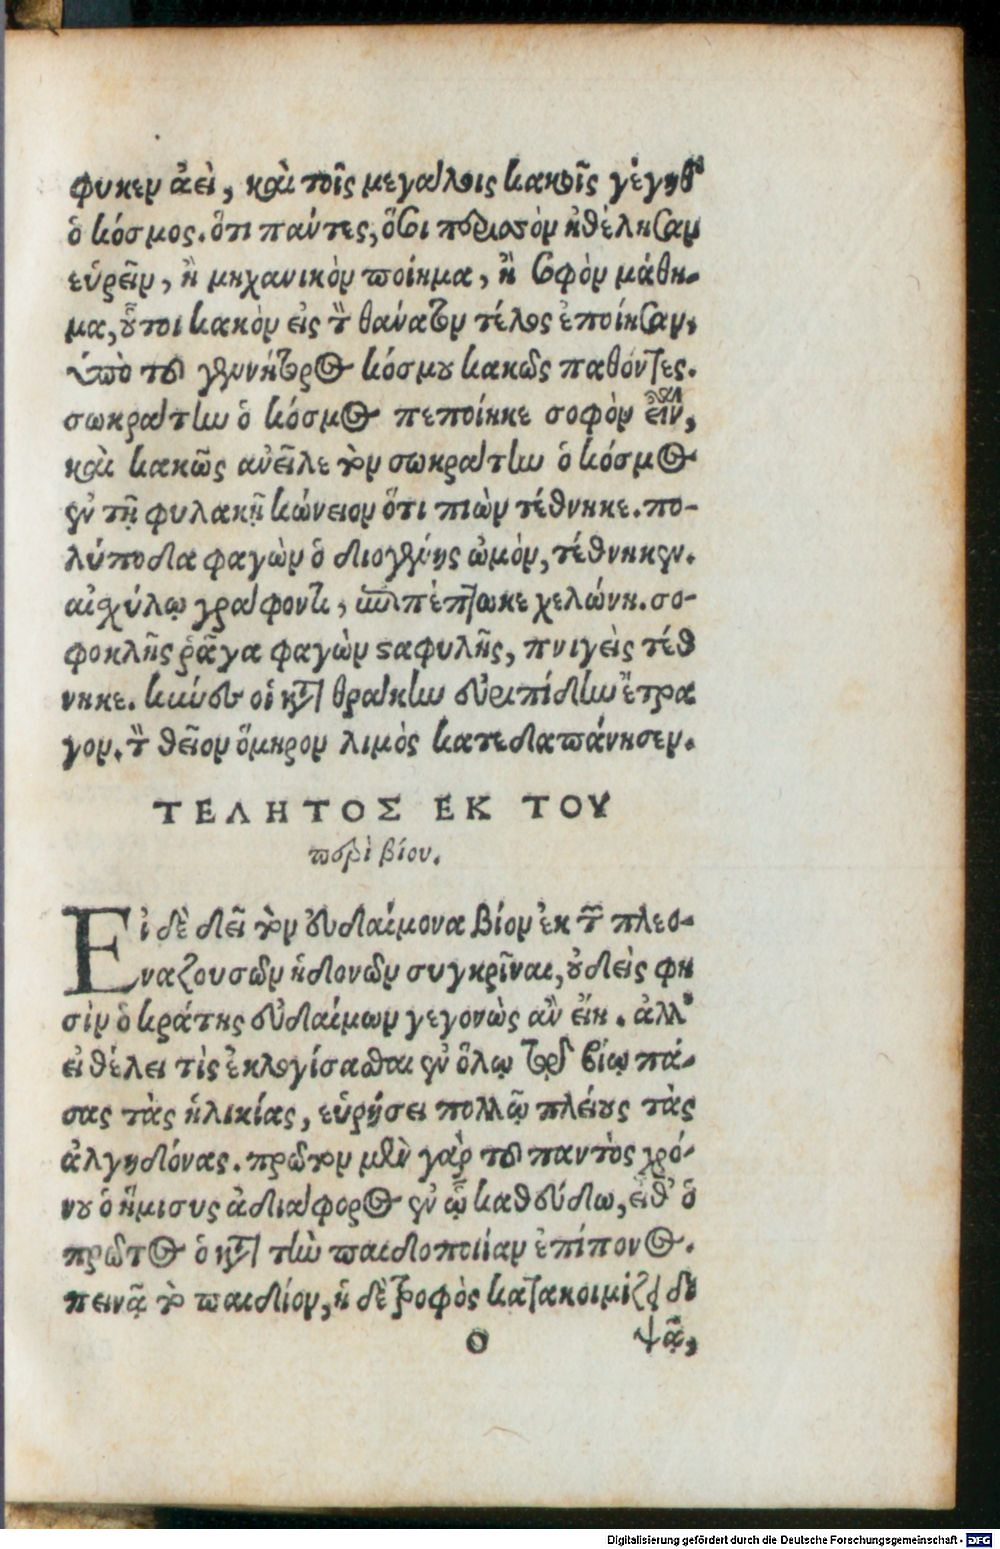 φυκεν ἀεὶ, καὶ τοῖς μεγάλοις κακοῖς γέγηθ᾽
ὁ κόσμος. ὅτι πάντες, ὅσοι περισσὸν ἠθέλησαν
εὑρεῖν, ἢ μηχανικὸν ποίημα, ἢ σοφὸν μάθη-
μα, οὗτοι κακὸν εἰς τὸν θάνατον τέλος ἐποίησαν,
ὑπὸ τοῦ γεννήτορος κόσμου κακῶς παθόντες.
σωκράτην ὁ κόσμος πεποίηκε σοφὸν εἶναι,
καὶ κακῶς ἀνεῖλε τὸν σωκράτην ὁ κόσμος
ἐν τῇ φυλακῇ κώνειον ὅτι πιὼν τέθνηκε. πο-
λύποδα φαγὼν ὁ διογένης ὠμὸν, τέθνηκεν.
αἰσχύλῳ γράφοντι, ἐπιπέπτωκε χελώνη. σο-
φοκλῆς ῥᾶγα φαγὼν σταφυλῆς, πνιγεὶς τέθ
νηκε. κύνες οἱ κατὰ θράκην εὐριπίδην ἔτρα
γον. τὸν θεῖον ὅμηρον λιμὸς κατεδαπάνησεν.
ΤΕΛΗΤΟΣ ΕΚ ΤΟΥ
περὶ βίου.
Εἰ δὲ δεῖ τὸν εὐδαίμονα βίον ἐκ τῶν πλεο-
ναζουσῶν ἡδονῶν συγκρῖναι, οὐδεὶς φη
σὶν ὁ κράτης εὐδαίμων γεγονὼς ἂν εἴη. ἀλλ᾽
εἰ θέλει τὶς ἐκλογίσασθαι ἐν ὅλῳ τῷ βίῳ πά-
σας τὰς ἡλικίας, εὑρήσει πολλῷ πλείους τὰς
ἀλγηδόνας. πρῶτον μὲν γὰρ τοῦ παντὸς χρό-
νου ὁ ἥμισυς ἀδιάφορος ἐν ᾧ καθεύδω, εἶθ᾽ ὁ
πρῶτος ὁ κατὰ τὴν παιδοποιίαν ἐπίπονος.
πεινᾷ τὸ παιδίον, ἡ δὲ τροφὸς κατακοιμίζει δι
ο ψᾷ,
Digitalisierung gefördert durch die Deutsche Forschungsgemeinschaft - DFG